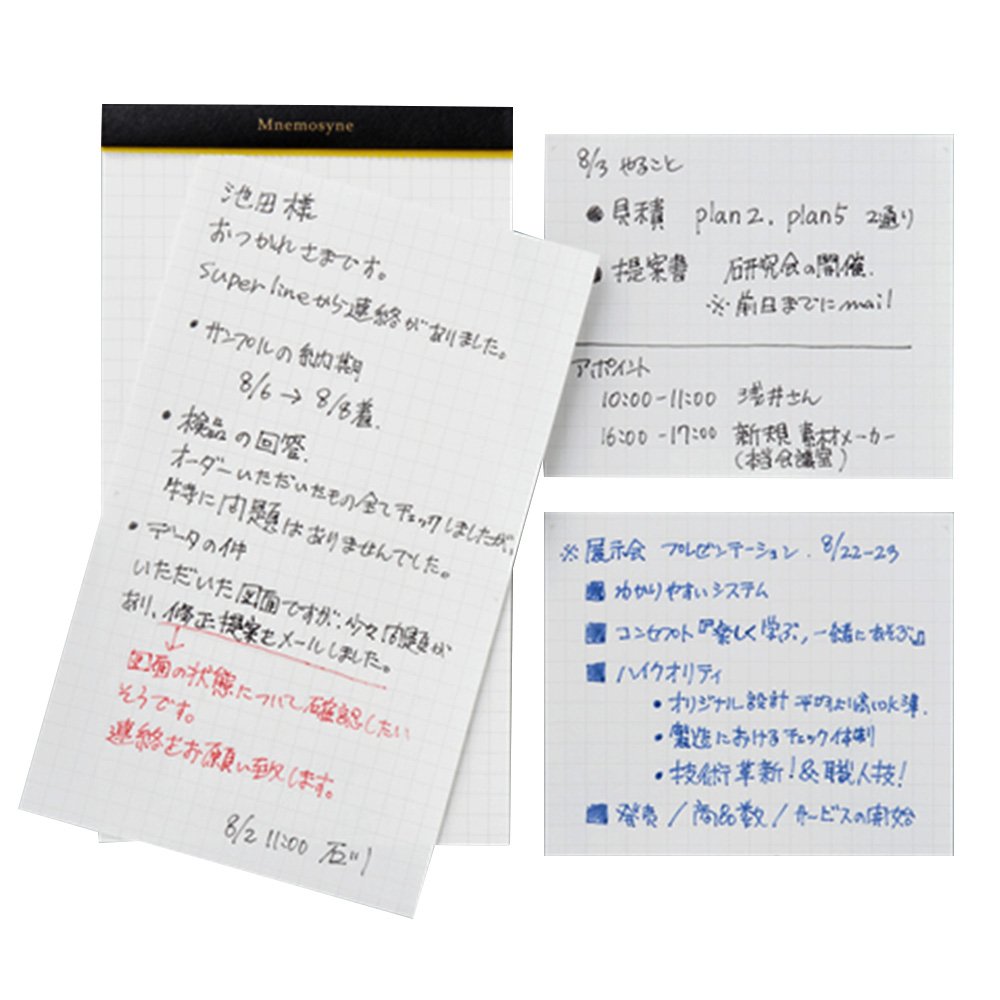 Mnemosyne
池田様
おつかれさまです。
super lineから連絡がありました。
・サンプルの納期
8/6→8/8着.
・検品の回答.
オーダーいただいたもの全てチェックしましたが、
特に問題はありませんでした。
・データの件
いただいた図面ですが、少々問題が
あり、修正提案をメールしました。
↓
図面の状態について確認したい
そうです。
連絡をお願い致します。
8/2 11:00 石川
8/3 やること
●見積 plan2. plan5 2通り
●提案書 研究会の開催.
※前日までにmail
アポイント
10:00-11:00 浅井さん
16:00-17:00 新規素材メーカー
(本社会議室)
※展示会 プレゼンテーション. 8/22-23
■わかりやすいシステム
■コンセプト『楽しく学ぶ,一緒にあそぶ』
■ハイクオリティ
・オリジナル設計 平均より高い水準.
・製造におけるチェック体制
・技術革新!&職人技!
■発売/商品数/サービスの開始